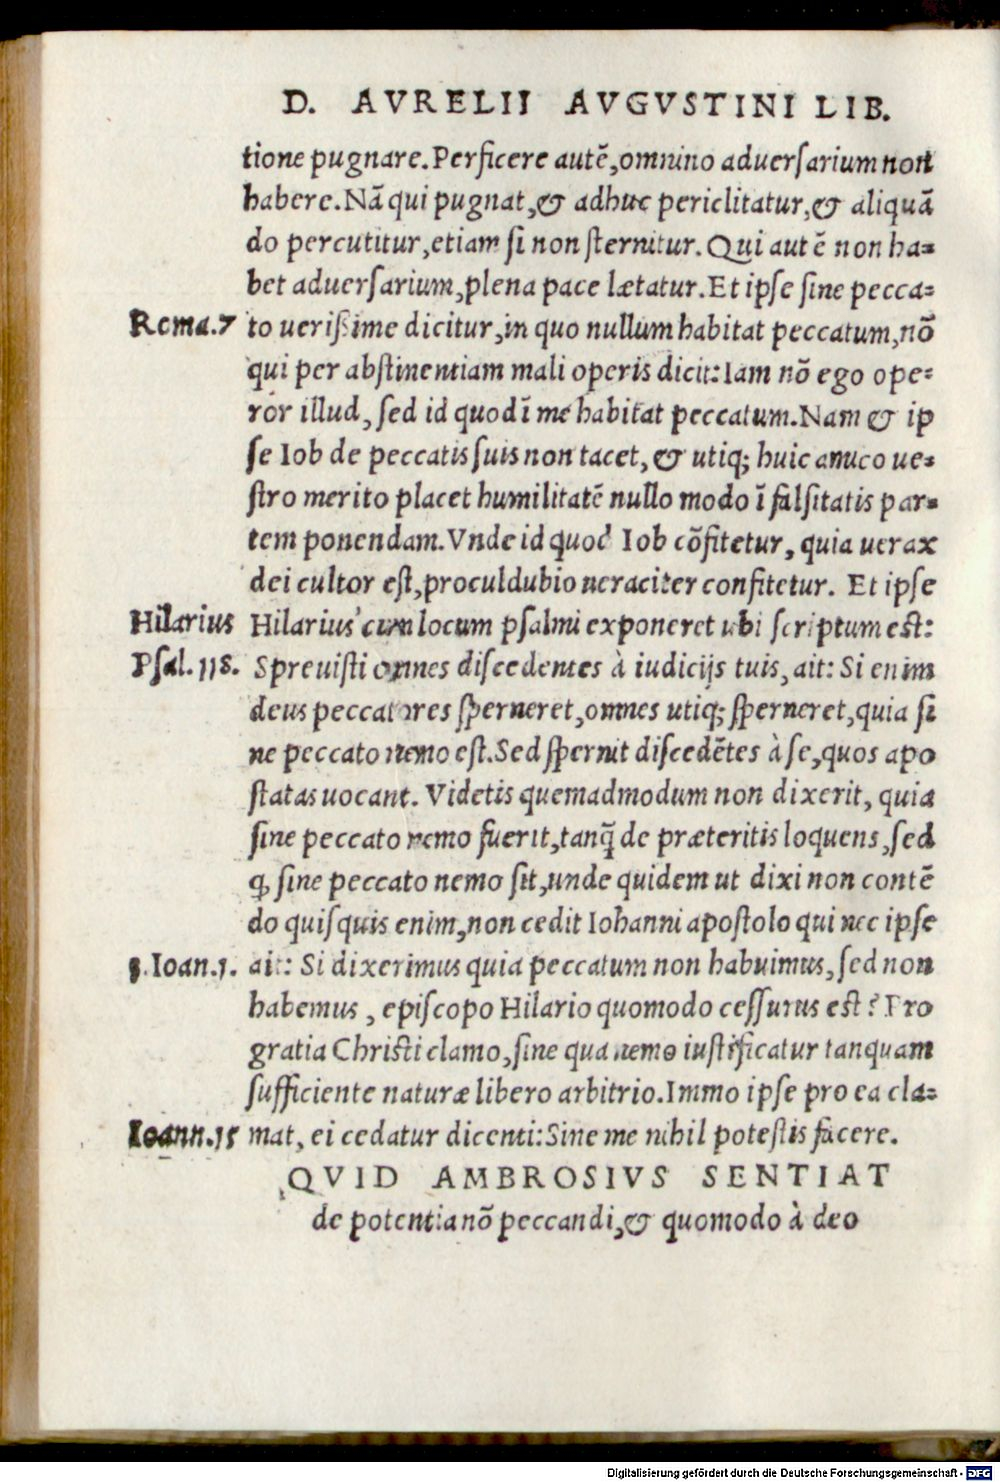 D. AVRELII AVGVSTINI LIB.
tione pugnare. Perficere autē, omnino aduersarium non
habere. Nā qui pugnat, & adhuc periclitatur, & aliquā
do percutitur, etiam si non sternitur. Qui autē non ha=
bet aduersarium, plena pace lætatur. Et ipse sine pecca=
Roma. 7 to uerißime dicitur, in quo nullum habitat peccatum, nō
qui per abstinentiam mali operis dicit: Iam nō ego ope=
ror illud, sed id quod ī me habitat peccatum. Nam & ip
se Iob de peccatis suis non tacet, & utiq; huic amico ue=
stro merito placet humilitatē nullo modo ī falsitatis par=
tem ponendam. Vnde id quod Iob cōfitetur, quia uerax
dei cultor est, proculdubio ueraciter confitetur. Et ipse
Hilarius Hilarius cum locum psalmi exponeret ubi scriptum est:
Psal. 118. Spreuisti omnes discedentes à iudicijs tuis, ait: Si enim
deus peccatores sperneret, omnes utiq; sperneret, quia si
ne peccato nemo est. Sed spernit discedētes à se, quos apo
statas uocant. Videtis quemadmodum non dixerit, quia
sine peccato nemo fuerit, tanq̃ de præteritis loquens, sed
ꝙ sine peccato nemo sit, unde quidem ut dixi non contē
do quisquis enim, non cedit Iohanni apostolo qui nec ipse
1. Ioan. 1. ait: Si dixerimus quia peccatum non habuimus, sed non
habemus, episcopo Hilario quomodo cessurus est? Pro
gratia Christi clamo, sine qua nemo iustificatur tanquam
sufficiente naturæ libero arbitrio. Immo ipse pro ea cla=
Ioann. 15 mat, ei cedatur dicenti: Sine me nihil potestis facere.
QVID AMBROSIVS SENTIAT
de potentia nō peccandi, & quomodo à deo
Digitalisierung gefördert durch die Deutsche Forschungsgemeinschaft - DFG